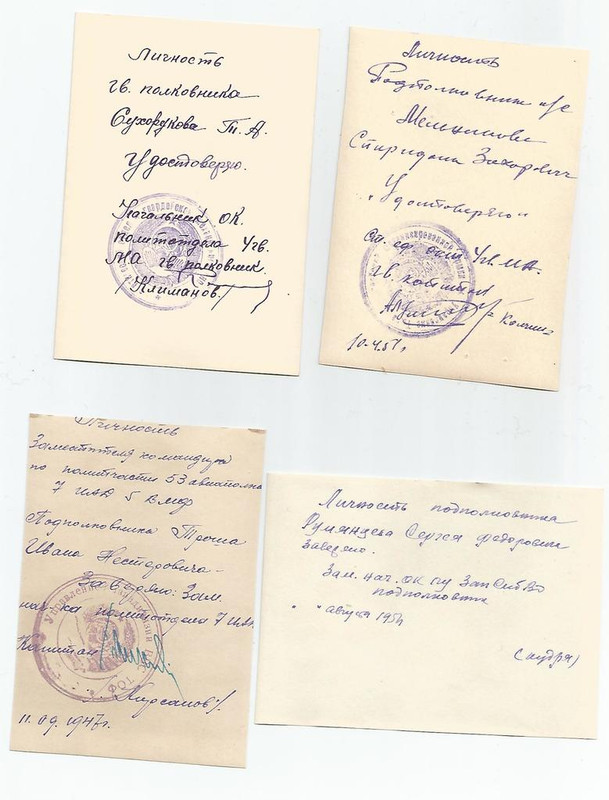 Личность
гв. полковника
Сухорукова Т. А.
Удостоверяю.
Начальник ОК
политотдела 4 гв.
МА гв. полковник
/Климанов./
Личность
Подполковник а/с
Мельникова
Спиридона Захарович
"Удостоверяю"
4 гв. МА.
гв капитан
10.4.51 г.
Личность
Заместителя командира
по политчасти 53 авиаполка
7 ИАД 5 ВМФ
Подполковника Трочша
Ивана Нестеровича-
Заверяю: Зам.
политотдела 7 ИАД.
Капитан
/Кирсанов/.
11.09.1947 г.
Личность подполковника
Румянцева Сергея Федоровича
заверено.
Зам. нач. ОК ПУ ЗапСибВО
подполковник
" " августа 1954